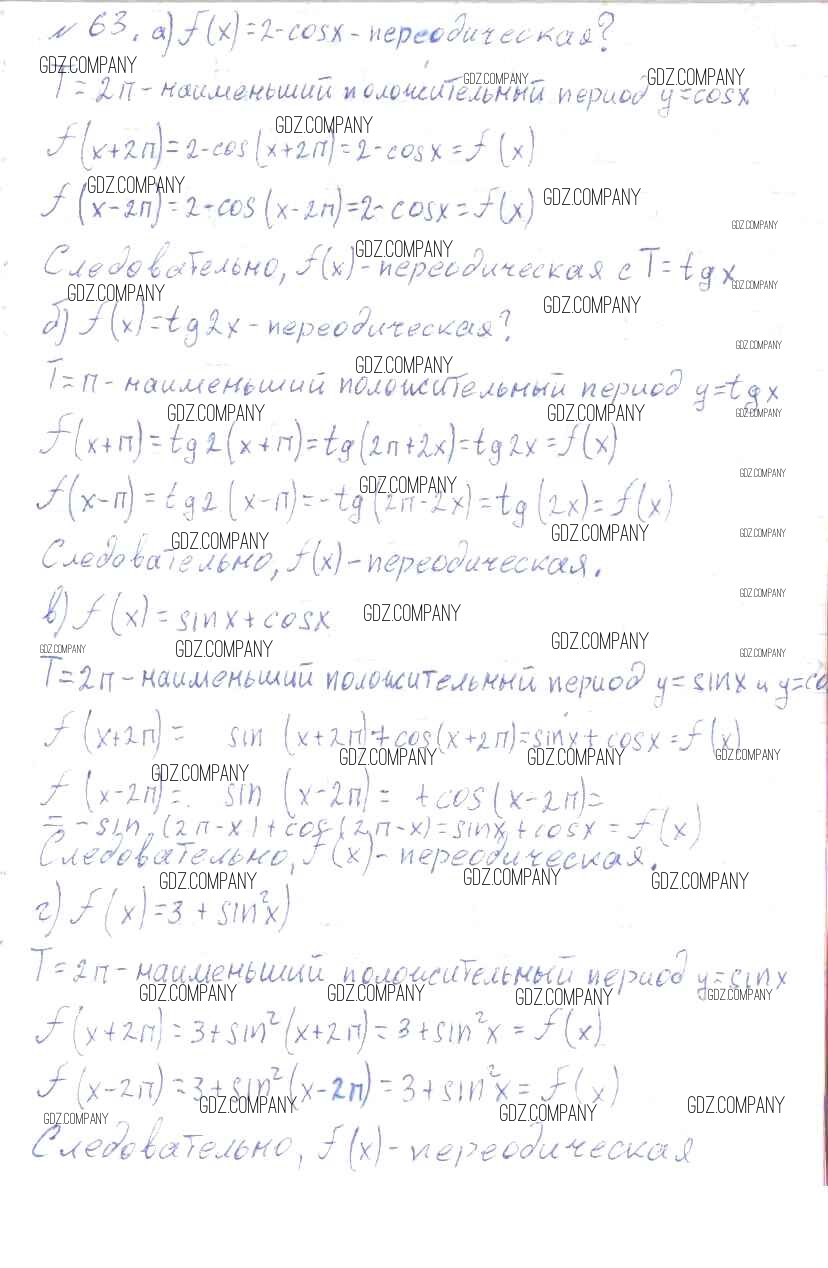 № 63. а) f(x)=2-cosx - переодическая?
GDZ.COMPANY
T=2π - наименьший положительный период y=cosx
GDZ.COMPANY GDZ.COMPANY
GDZ.COMPANY
f(x+2π)=2-cos(x+2π)=2-cosx=f(x)
GDZ.COMPANY GDZ.COMPANY
f(x-2π)=2-cos(x-2π)=2-cosx=f(x)
GDZ.COMPANY
GDZ.COMPANY
Следовательно, f(x)-переодическая с T=tgx
GDZ.COMPANY
GDZ.COMPANY GDZ.COMPANY
б) f(x)=tg2x - переодическая?
GDZ.COMPANY
GDZ.COMPANY
T=π - наименьший положительный период y=tgx
GDZ.COMPANY GDZ.COMPANY GDZ.COMPANY
f(x+π)=tg2(x+π)=tg(2π+2x)=tg2x=f(x)
GDZ.COMPANY GDZ.COMPANY
f(x-π)=tg2(x-π)=-tg(2π-2x)=tg(2x)=f(x)
GDZ.COMPANY GDZ.COMPANY GDZ.COMPANY
Следовательно, f(x)-переодическая.
GDZ.COMPANY
в) f(x)=sinx+cosx
GDZ.COMPANY
GDZ.COMPANY GDZ.COMPANY GDZ.COMPANY GDZ.COMPANY
T=2π - наименьший положительный период y=sinx и y=co
f(x+2π)= sin(x+2π)+cos(x+2π)=sinx+cosx=f(x)
GDZ.COMPANY GDZ.COMPANY GDZ.COMPANY
GDZ.COMPANY
f(x-2π)= sin(x-2π)= +cos(x-2π)=
=-sin(2π-x)+cos(2π-x)=sinx+cosx=f(x)
Следовательно, f(x)-переодическая.
GDZ.COMPANY GDZ.COMPANY GDZ.COMPANY
г) f(x)=3+sin²x)
T=2π - наименьший положительный период y=sinx
GDZ.COMPANY GDZ.COMPANY GDZ.COMPANY GDZ.COMPANY
f(x+2π)=3+sin²(x+2π)=3+sin²x=f(x)
f(x-2π)=3+sin²(x-2π)=3+sin²x=f(x)
GDZ.COMPANY GDZ.COMPANY GDZ.COMPANY GDZ.COMPANY
Следовательно, f(x)-переодическая